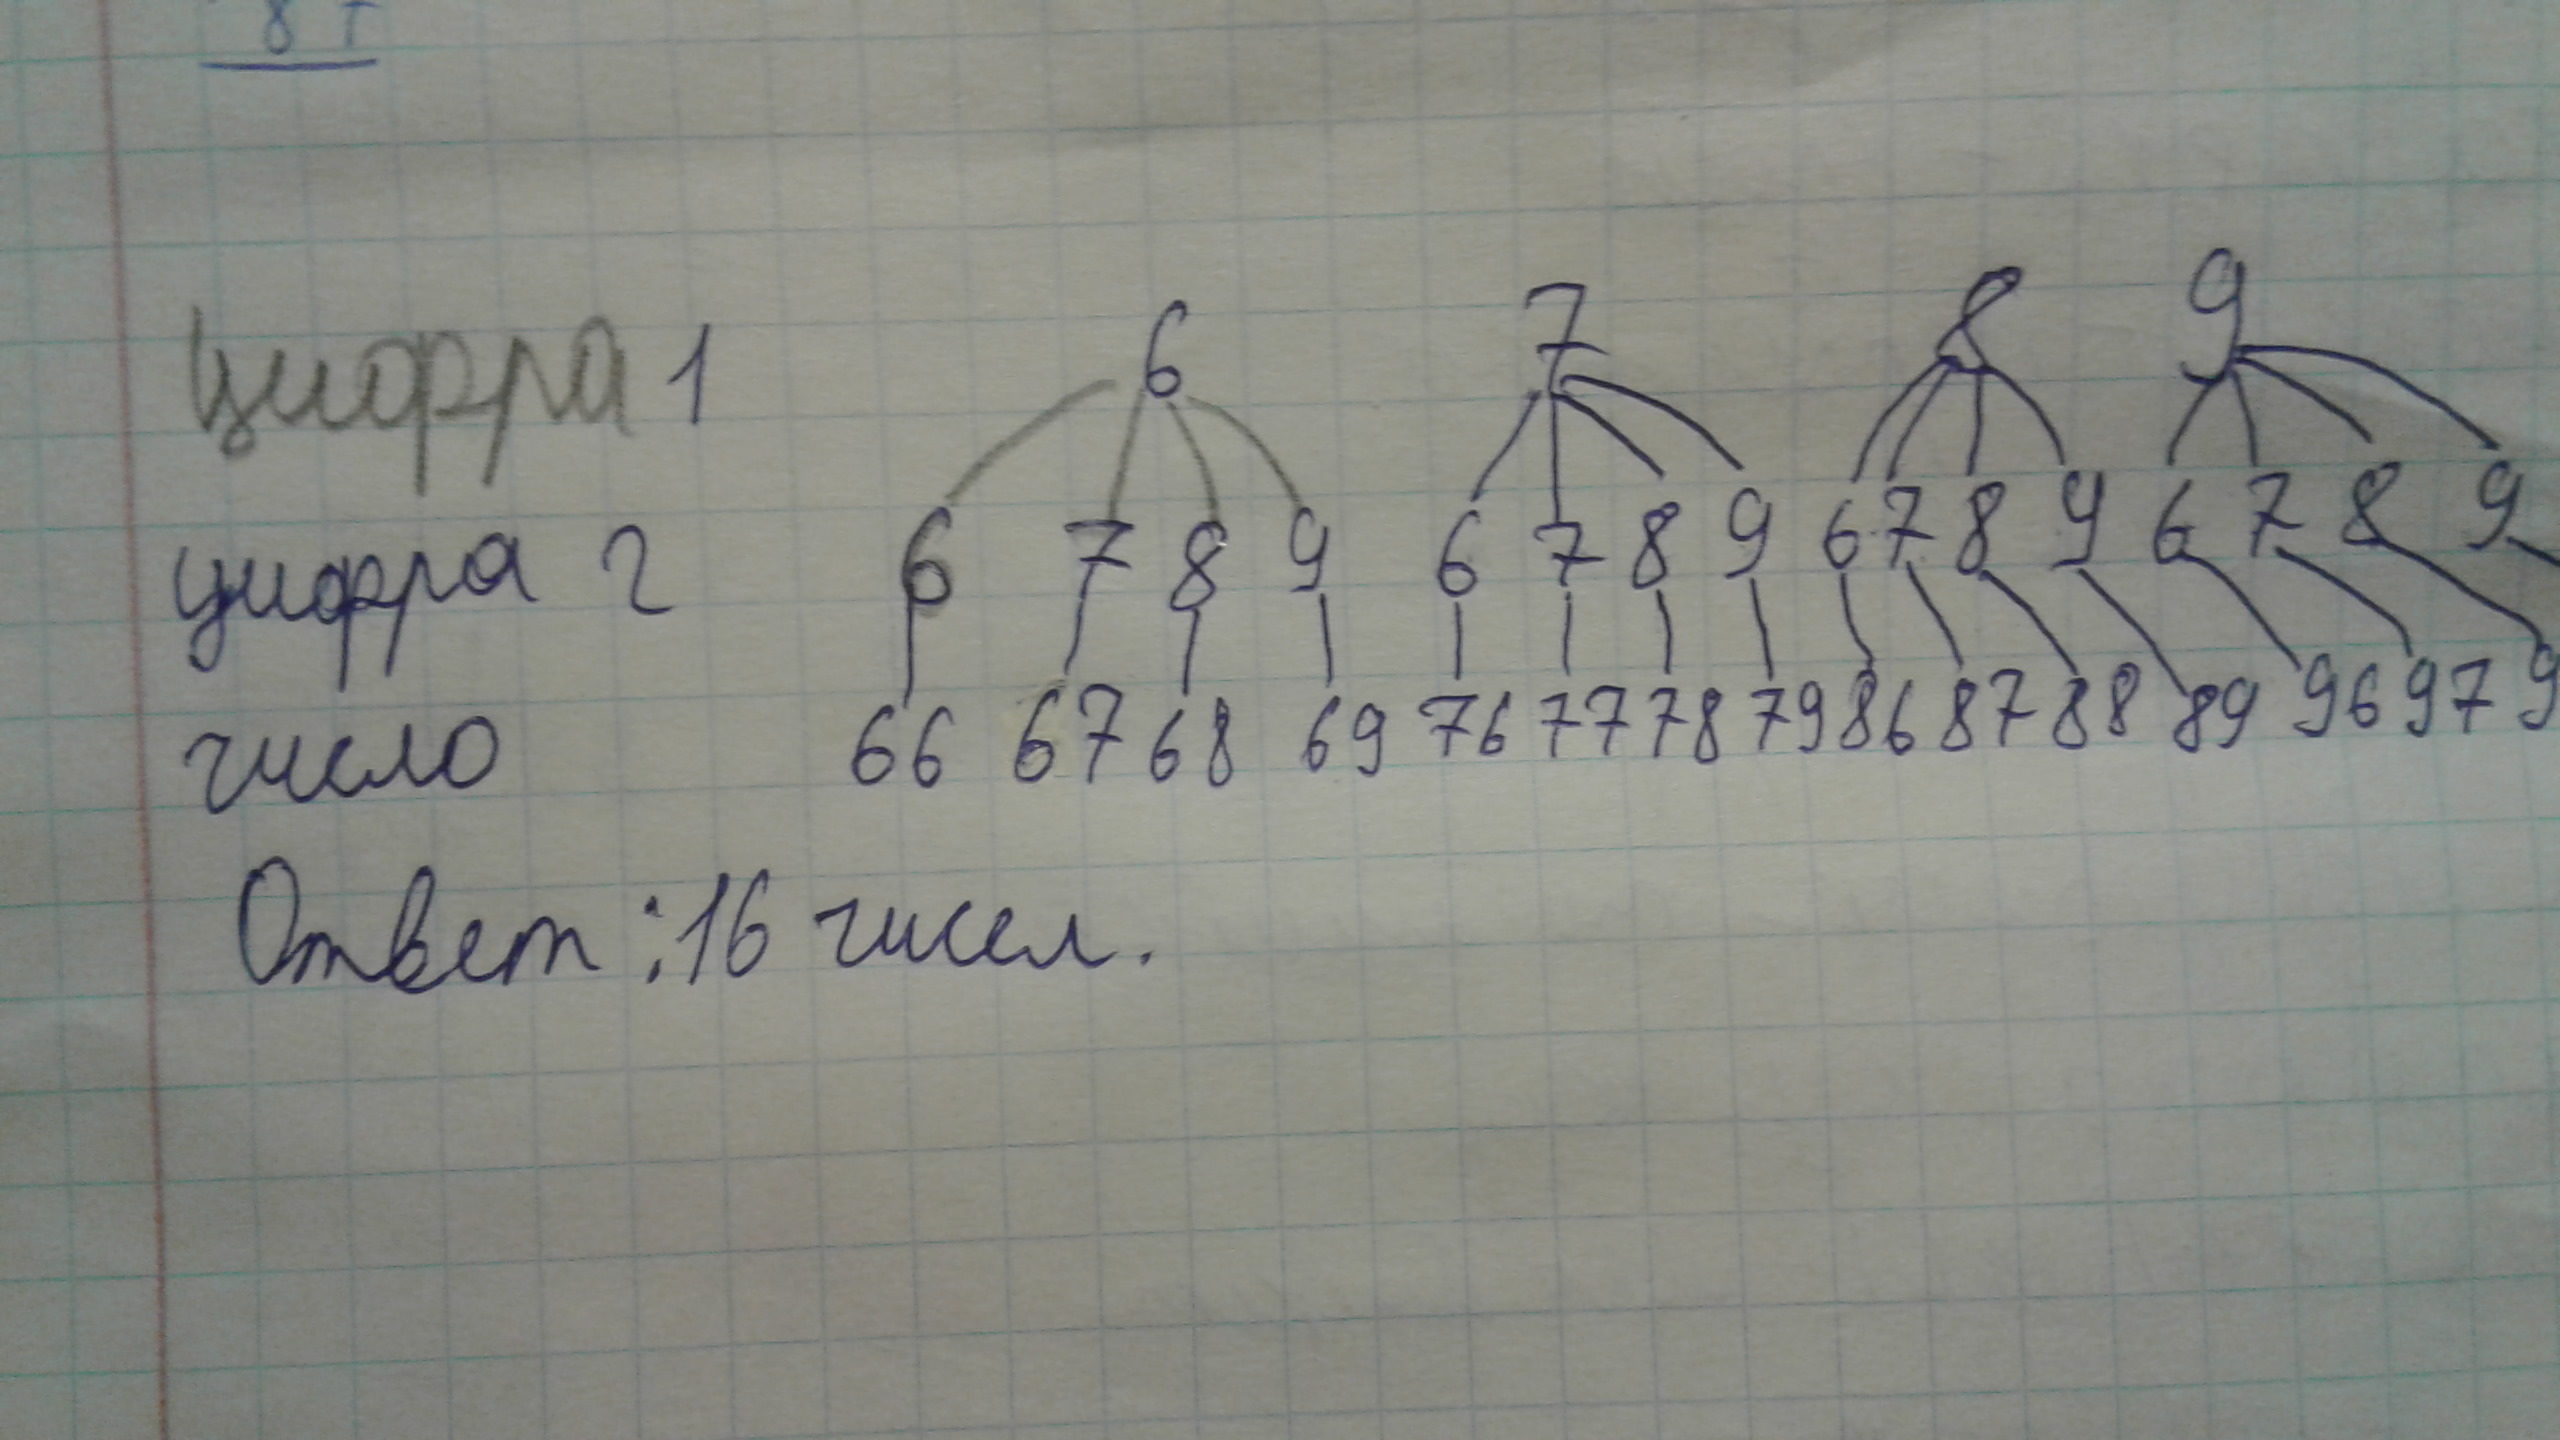 цифра 1 6 7 8 9
цифра 2 6 7 8 9 6 7 8 9 6 7 8 9 6 7 8 9
число 66 67 68 69 76 77 78 79 86 87 88 89 96 97 9
Ответ: 16 чисел.